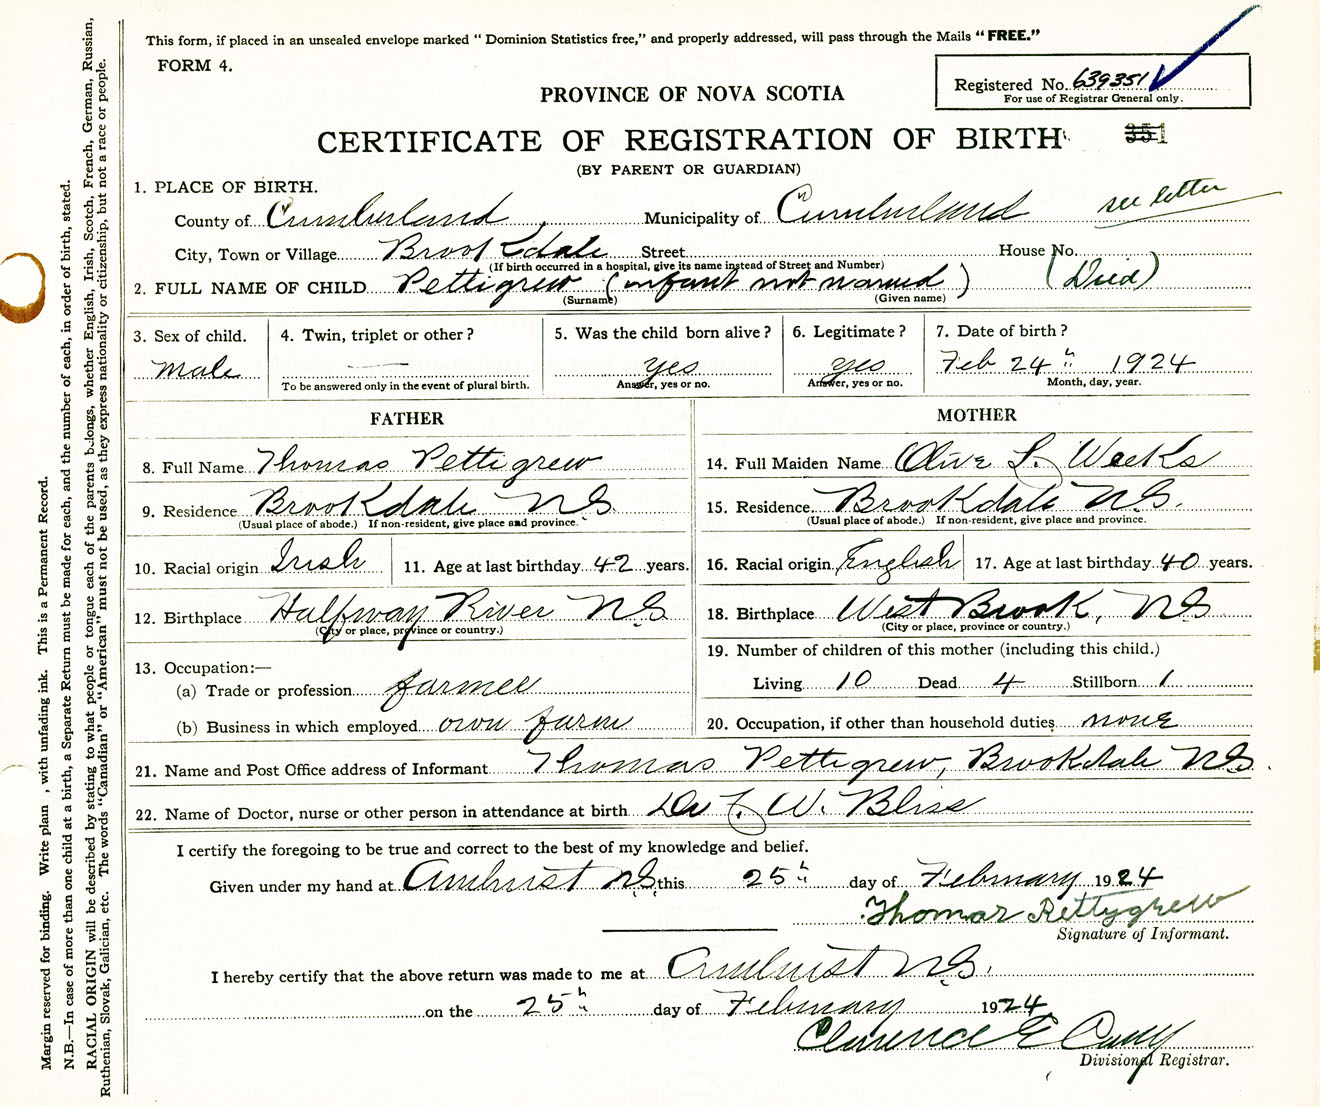 This form, if placed in an unsealed envelope marked “ Dominion Statistics free,” and properly addressed, will pass through the Mails “ FREE.”
FORM 4.
Registered No. 639351
For use of Registrar General only.
PROVINCE OF NOVA SCOTIA
CERTIFICATE OF REGISTRATION OF BIRTH
351
(BY PARENT OR GUARDIAN)
1. PLACE OF BIRTH.
see letter
County of Cumberland Municipality of Cumberland
City, Town or Village Brookdale Street House No.
(If birth occurred in a hospital, give its name instead of Street and Number)
2. FULL NAME OF CHILD Pettigrew (infant not named) (Died)
(Surname) (Given name)
3. Sex of child. 4. Twin, triplet or other ? 5. Was the child born alive ? 6. Legitimate ? 7. Date of birth ?
Male — yes yes Feb 24th 1924
To be answered only in the event of plural birth. Answer, yes or no. Answer, yes or no. Month, day, year.
FATHER MOTHER
8. Full Name Thomas Pettigrew 14. Full Maiden Name Olive L. Weeks
9. Residence Brookdale N.S. 15. Residence. Brookdale N.S.
(Usual place of abode.) If non-resident, give place and province. (Usual place of abode.) If non-resident, give place and province.
10. Racial origin Irish 11. Age at last birthday 42 years. 16. Racial origin English 17. Age at last birthday 40 years.
12. Birthplace Halfway River N.S 18. Birthplace West Brook, N.S
(City or place, province or country.) (City or place, province or country.)
13. Occupation:—
19. Number of children of this mother (including this child.)
(a) Trade or profession farmer Living 10 Dead 4 Stillborn 1
(b) Business in which employed own farm 20. Occupation, if other than household duties none
21. Name and Post Office address of Informant Thomas Pettigrew, Brookdale N.S.
22. Name of Doctor, nurse or other person in attendance at birth Dr F. W. Bliss
I certify the foregoing to be true and correct to the best of my knowledge and belief.
Given under my hand at Amherst N.S. this 25th day of February 1924
Thomas Pettygrew
Signature of Informant.
I hereby certify that the above return was made to me at Amherst N.S.
on the 25th day of February 1924
Clarence E
Divisional Registrar.
Margin reserved for binding. Write plain , with unfading ink. This is a Permanent Record.
N.B.—In case of more than one child at a birth, a Separate Return must be made for each, and the number of each, in order of birth, stated.
RACIAL ORIGIN will be described by stating to what people or tongue each of the parents belongs, whether English, Irish, Scotch, French, German, Russian,
Ruthenian, Slovak, Galician, etc. The words “Canadian” or “American” must not be used, as they express nationality or citizenship, but not a race or people.